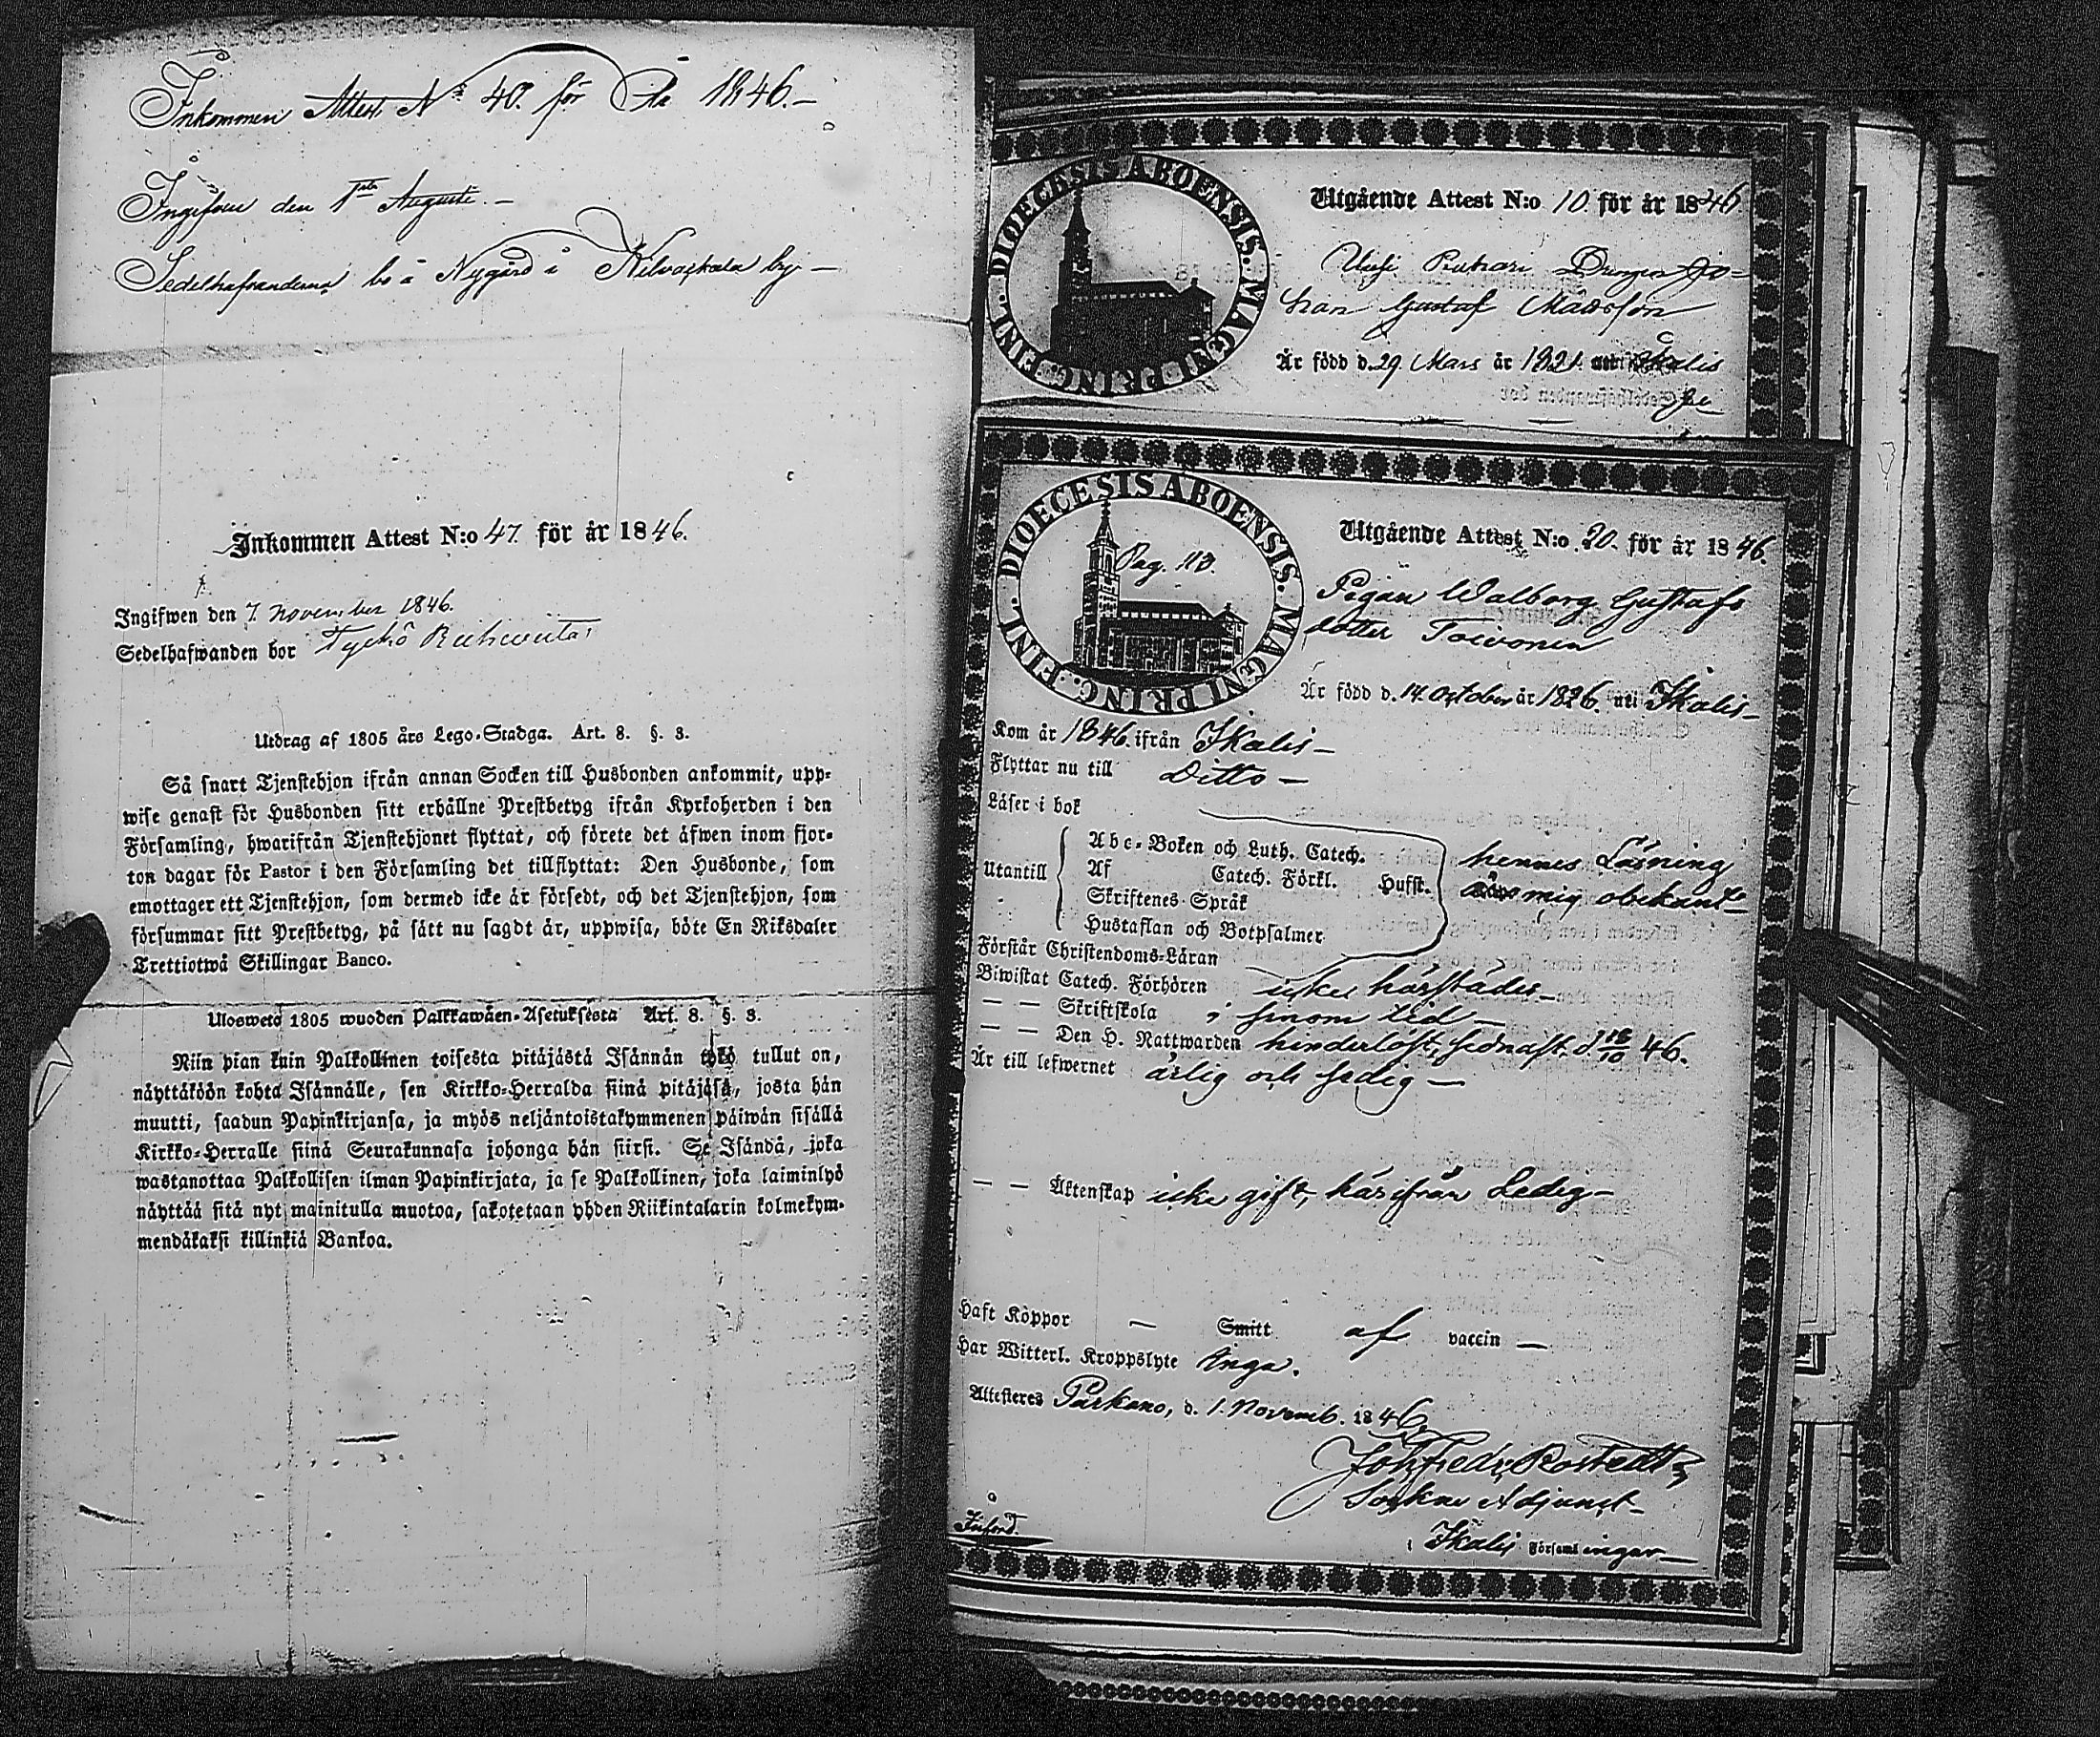 Inkommen Attest N: 40. för 1846.–
Ingifven den 1sta Augusti.–
Sedelhafvanderna bo å Nygård i by –
Inkommen Attest N:o 47. för år 1846.
Ingifwen den 7. November 1846.
Sedelhafwanden bor Tyckö
Utdrag af 1805 års Lego-Stadga. Art. 8. §. 3.
Så snart Tjenstehjon ifrån annan Socken till Husbonden ankommit, upp-
wise genast för Husbonden sitt erhållne Prestbetyg ifrån Kyrkoherden i den
Församling, hwarifrån Tjenstehjonet flyttat, och förete det äfwen inom fjor-
ton dagar för Pastor i den Församling det tillflyttat: Den Husbonde, som
emottager ett Tjenstehjon, som dermed icke är försedt, och det Tjenstehjon, som
försummar sitt Prestbetyg, på sätt nu sagdt är, uppwisa, böte En Riksdaler
Trettiotwå Skillingar Banco.
Uloswetö 1805 wuoden Palkkawäen-Asetuksesta Art. 8. §. 3.
Niin pian kuin Palkollinen toisesta pitäjästä Isännän työkö tullut on,
näyttäköön kohta Isännälle, sen Kirkko-Herralda siinä pitäjäsä, josta hän
muutti, saadun Papinkirjansa, ja myös neljäntoistakymmenen päiwän sisällä
Kirkko-Herralle siinä Seurakunnasa johonga hän siirsi. Se Isändä, joka
wastanottaa Palkollisen ilman Papinkirjata, ja se Palkollinen, joka laiminlyö
näyttää sitä nyt mainitulla muotoa, sakotetaan yhden Riikintalarin kolmekym-
mendäkaksi killinkiä Bankoa.
DIOECESIS ABOENSIS. MAGNI PRINC. FINL.
Utgående Attest N:o 10. för år 1846
Drengen Jo-
han Gustaf Mattsson
Är född d. 29. Mars år 1821. uti Ikalis
DIOECESIS ABOENSIS. MAGNI PRINC. FINL.
Pag. 113.
Utgående Attest N:o 20. för år 1846.
Pigan Walborg Gustafs
dotter Toivonen
Är född d. 14. October år 1826. uti Ikalis –
Kom år 1846. ifrån Ikalis –
Flyttar nu till Ditto –
Läser i bok
Utantill
Abc-Boken och Luth. Catech.
Af Catech. Förkl. Hufst.
Skriftenes Språk
Hustaflan och Botpsalmer
hennes Läsning
mig obekant –
Förstår Christendoms-Läran
Biwistat Catech. Förhören icke härstädes –
— — Skriftskola i sinom tid –
— — Den H. Nattwarden hinderlöst, sednast d. 18/10 46.
Är till lefwernet ärlig och sedig –
— — Äktenskap icke gift, härifrån Ledig –
Haft Koppor — Smitt af vaccin —
Har Witterl. Kroppslyte Inga.
Attesteres Parkano, d. 1. Novemb. 1846,
Joh. Fredr. Rostedt
Sockne Adjunct –
i Ikalis Församlingar –
Införd.